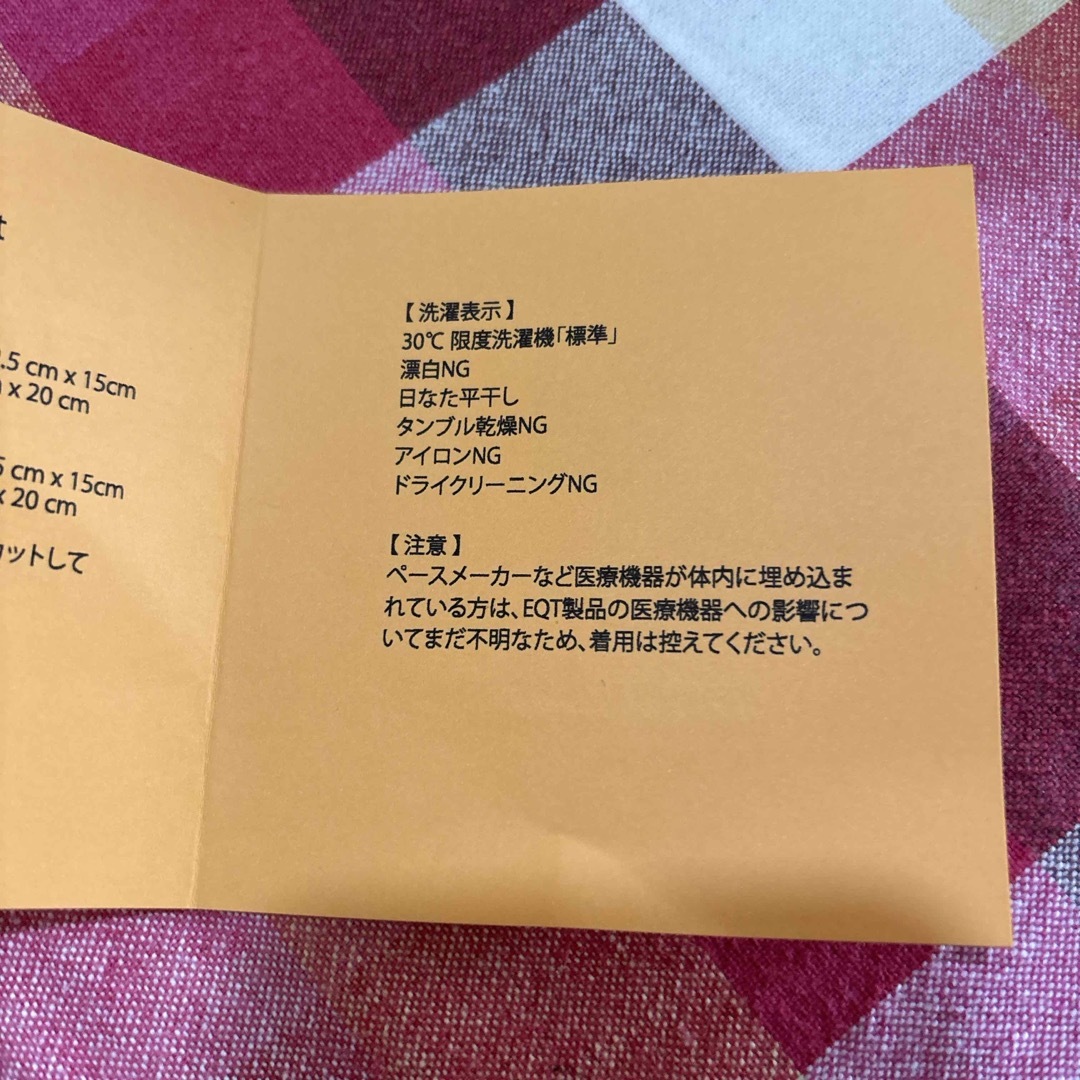 .5 cm x 15cm
x 20 cm
5 cm x 15cm
x 20 cm
カットして
【 洗濯表示 】
30℃ 限度洗濯機「標準」
漂白NG
日なた平干し
タンブル乾燥NG
アイロンNG
ドライクリーニングNG
【 注意 】
ペースメーカーなど医療機器が体内に埋め込ま
れている方は、EQT製品の医療機器への影響につ
いてまだ不明なため、着用は控えてください。